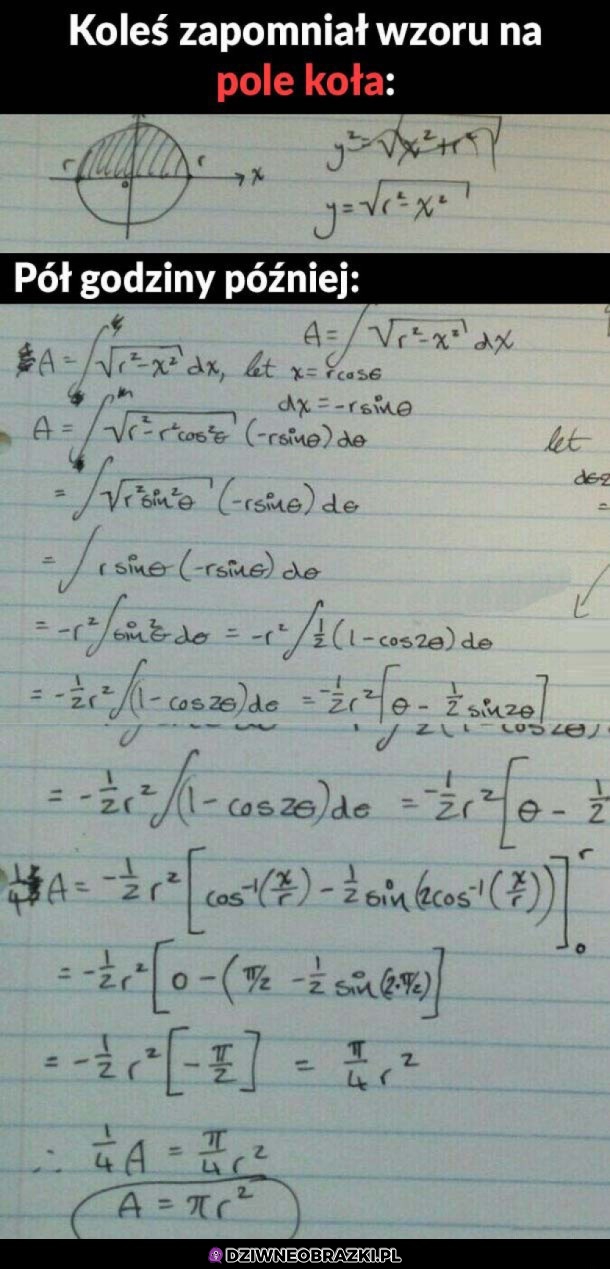 Koleś zapomniał wzoru na
pole koła:
r r x
o
y²=√x²+r²
y=√r²-x²
Pół godziny później:
A=∫√r²-x² dx
A=∫√r²-x² dx, let x=rcosθ
dx=-rsinθ
A=∫√r²-r²cos²θ (-rsinθ)dθ
let
=∫√r²sin²θ (-rsinθ)dθ
=∫rsinθ(-rsinθ)dθ
=-r²∫sin²θ dθ = -r²∫½(1-cos2θ)dθ
=-½r²∫(1-cos2θ)dθ = -½r²[θ-½sin2θ]
=-½r²∫(1-cos2θ)dθ = -½r²[θ-½
¼A=-½r²[cos⁻¹(x/r)-½sin(2cos⁻¹(x/r))]ʳ₀
=-½r²[0-(π/2-½sin(2·π/2)]
=-½r²[-π/2] = π/4 r²
∴ ¼A = π/4 r²
A=πr²
DZIWNEOBRAZKI.PL